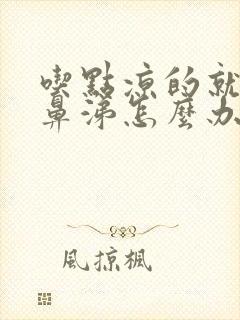 喫點涼的就
鼻涕怎麼办
風掠楓